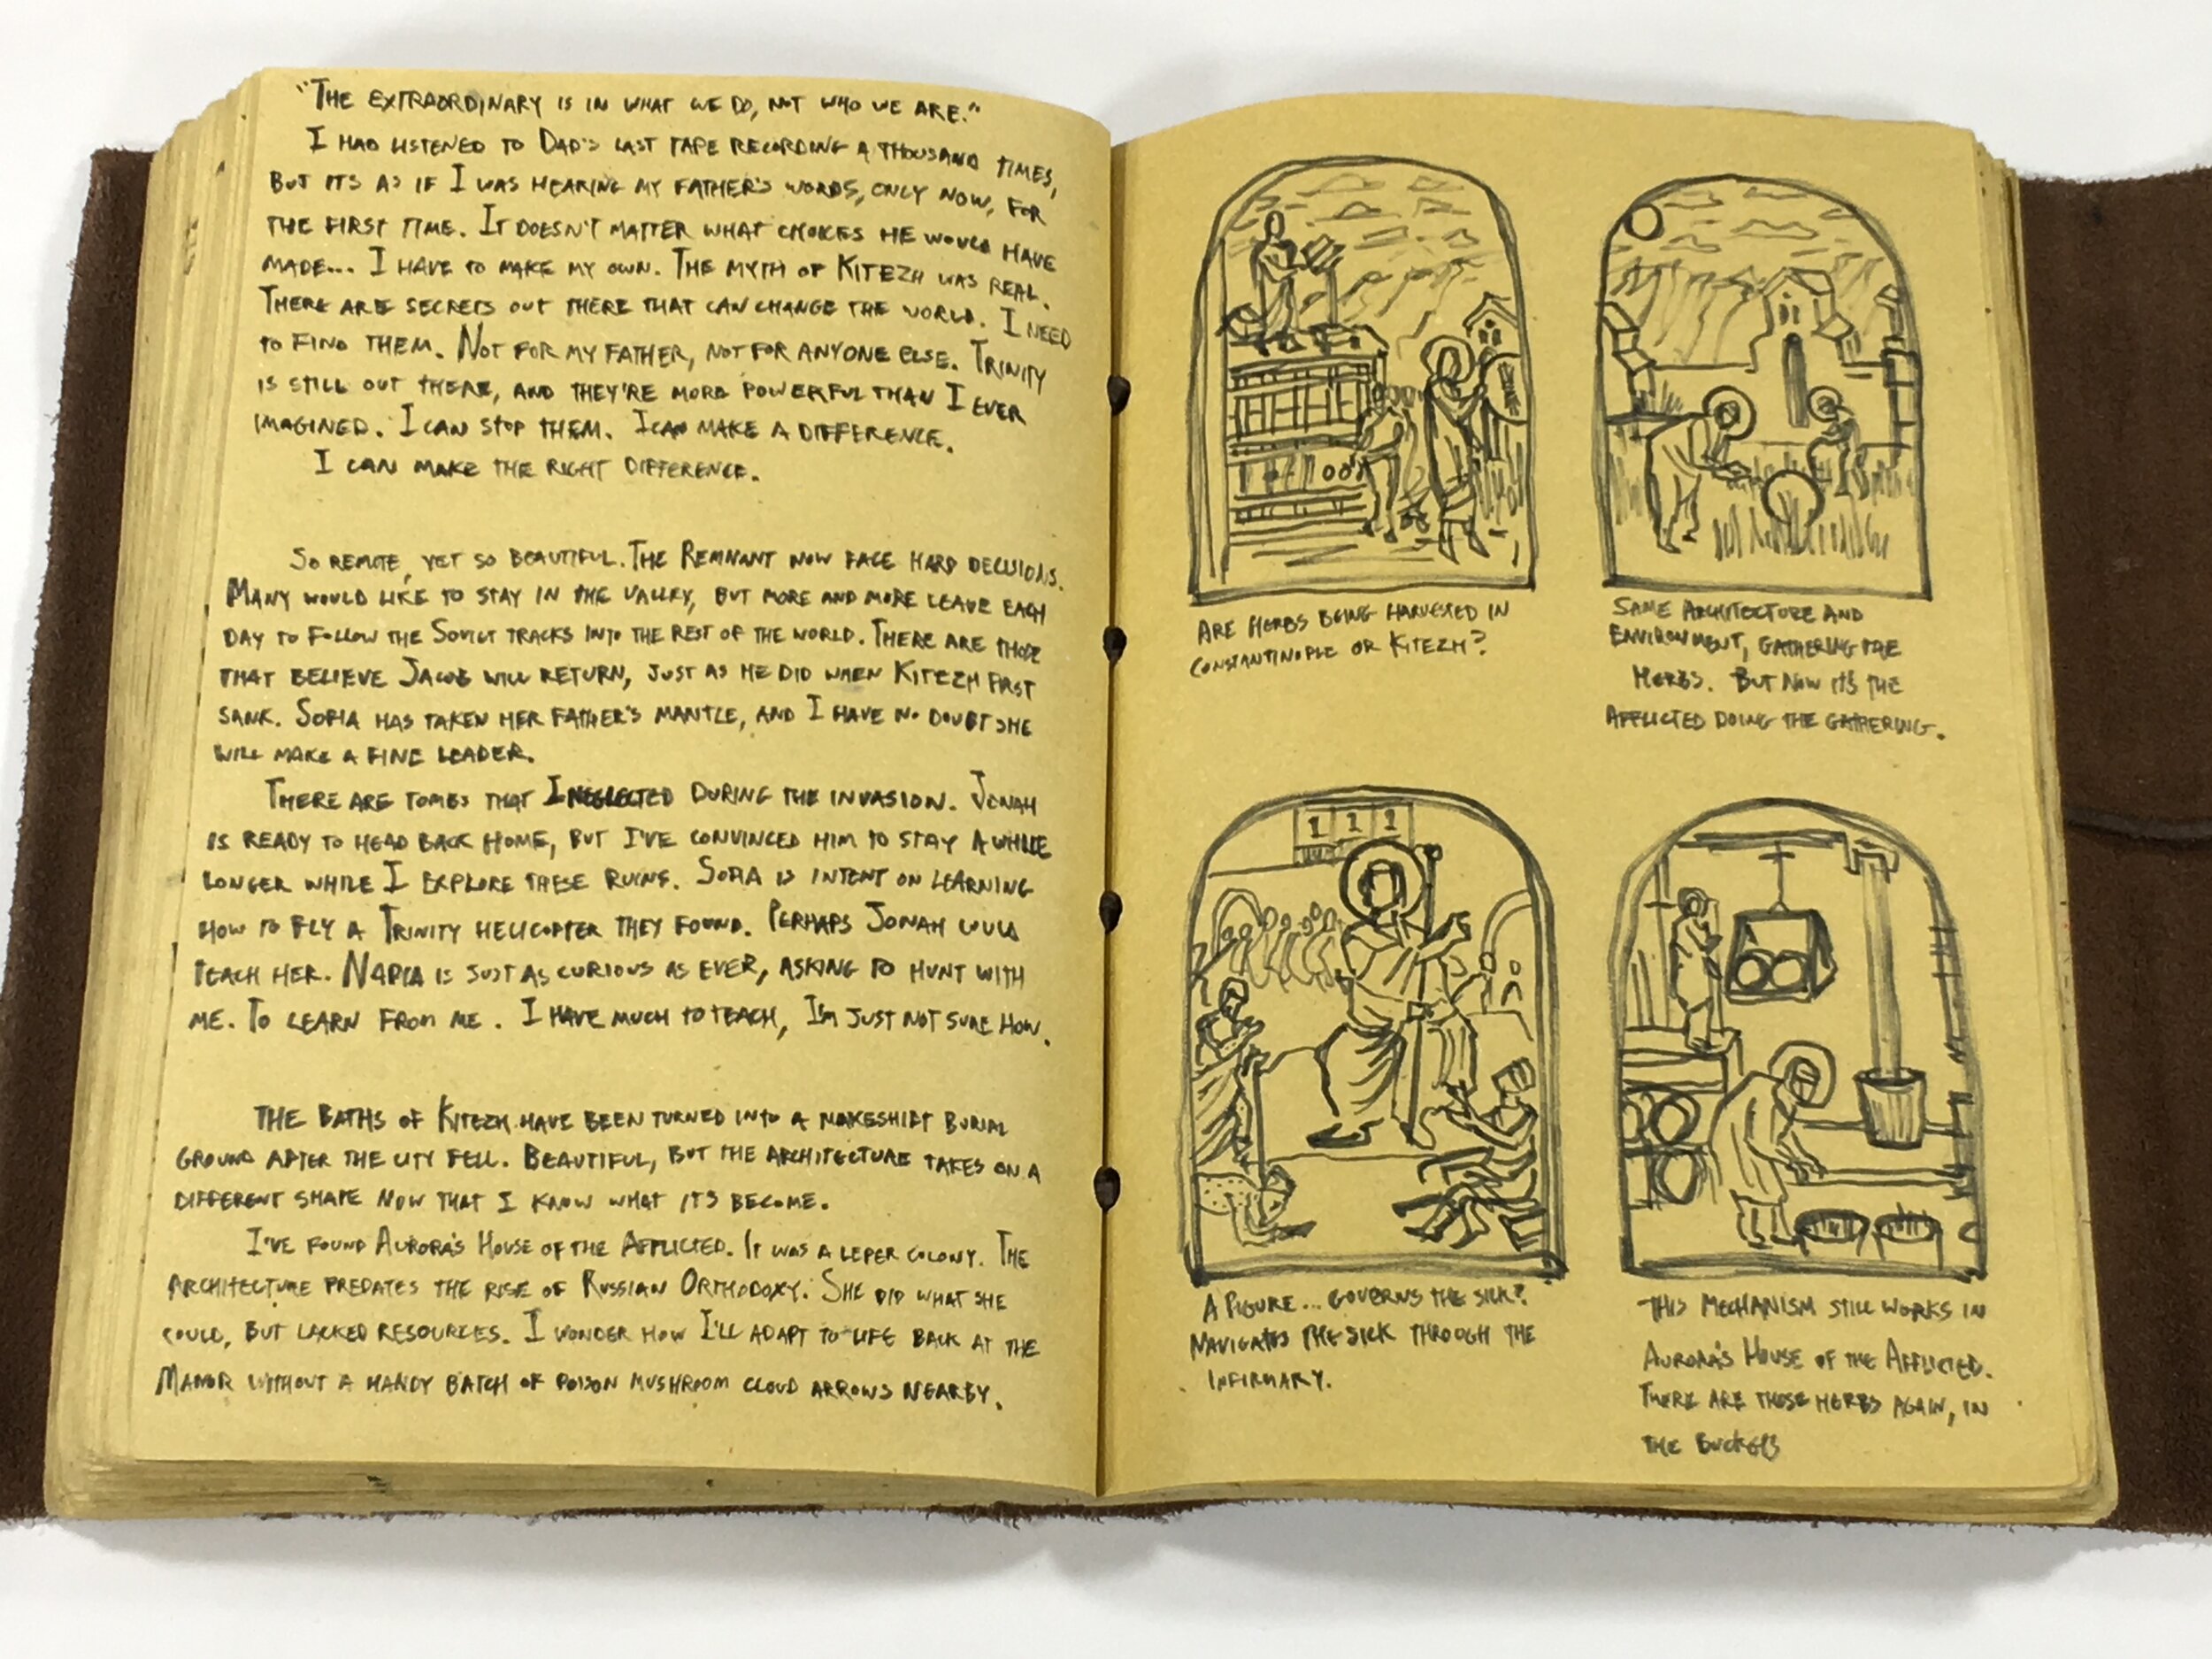 "The extraordinary is in what we do, not who we are."
I had listened to Dad's last tape recording a thousand times,
but its as if I was hearing my father's words, only now, for
the first time. It doesn't matter what choices he would have
made... I have to make my own. The myth of Kitezh was real.
There are secrets out there that can change the world. I need
to find them. Not for my father, not for anyone else. Trinity
is still out there, and they're more powerful than I ever
imagined. I can stop them. I can make a difference.
I can make the right difference.
So remote, yet so beautiful. The Remnant now face hard decisions.
Many would like to stay in the valley, but more and more leave each
day to follow the Soviet tracks into the rest of the world. There are those
that believe Jacob will return, just as he did when Kitezh first
sank. Sofia has taken her father's mantle, and I have no doubt she
will make a fine leader.
There are tombs that I neglected during the invasion. Jonah
is ready to head back home, but I've convinced him to stay a while
longer while I explore these ruins. Sofia is intent on learning
how to fly a Trinity helicopter they found. Perhaps Jonah could
teach her. Nadia is just as curious as ever, asking to hunt with
me. To learn from me. I have much to teach, I'm just not sure how.
The baths of Kitezh have been turned into a makeshift burial
ground after the city fell. Beautiful, but the architecture takes on a
different shape now that I know what its become.
I've found Aurora's House of the Afflicted. It was a leper colony. The
architecture predates the rise of Russian Orthodoxy. She did what she
could, but lacked resources. I wonder how I'll adapt to life back at the
Manor without a handy batch of poison mushroom cloud arrows nearby.
Are herbs being harvested in
Constantinople or Kitezh?
Same architecture and
environment, gathering the
herbs. But now it's the
afflicted doing the gathering.
1 1 1
A figure... governs the sick?
Navigates the sick through the
infirmary.
This mechanism still works in
Aurora's House of the Afflicted.
There are those herbs again, in
the buckets